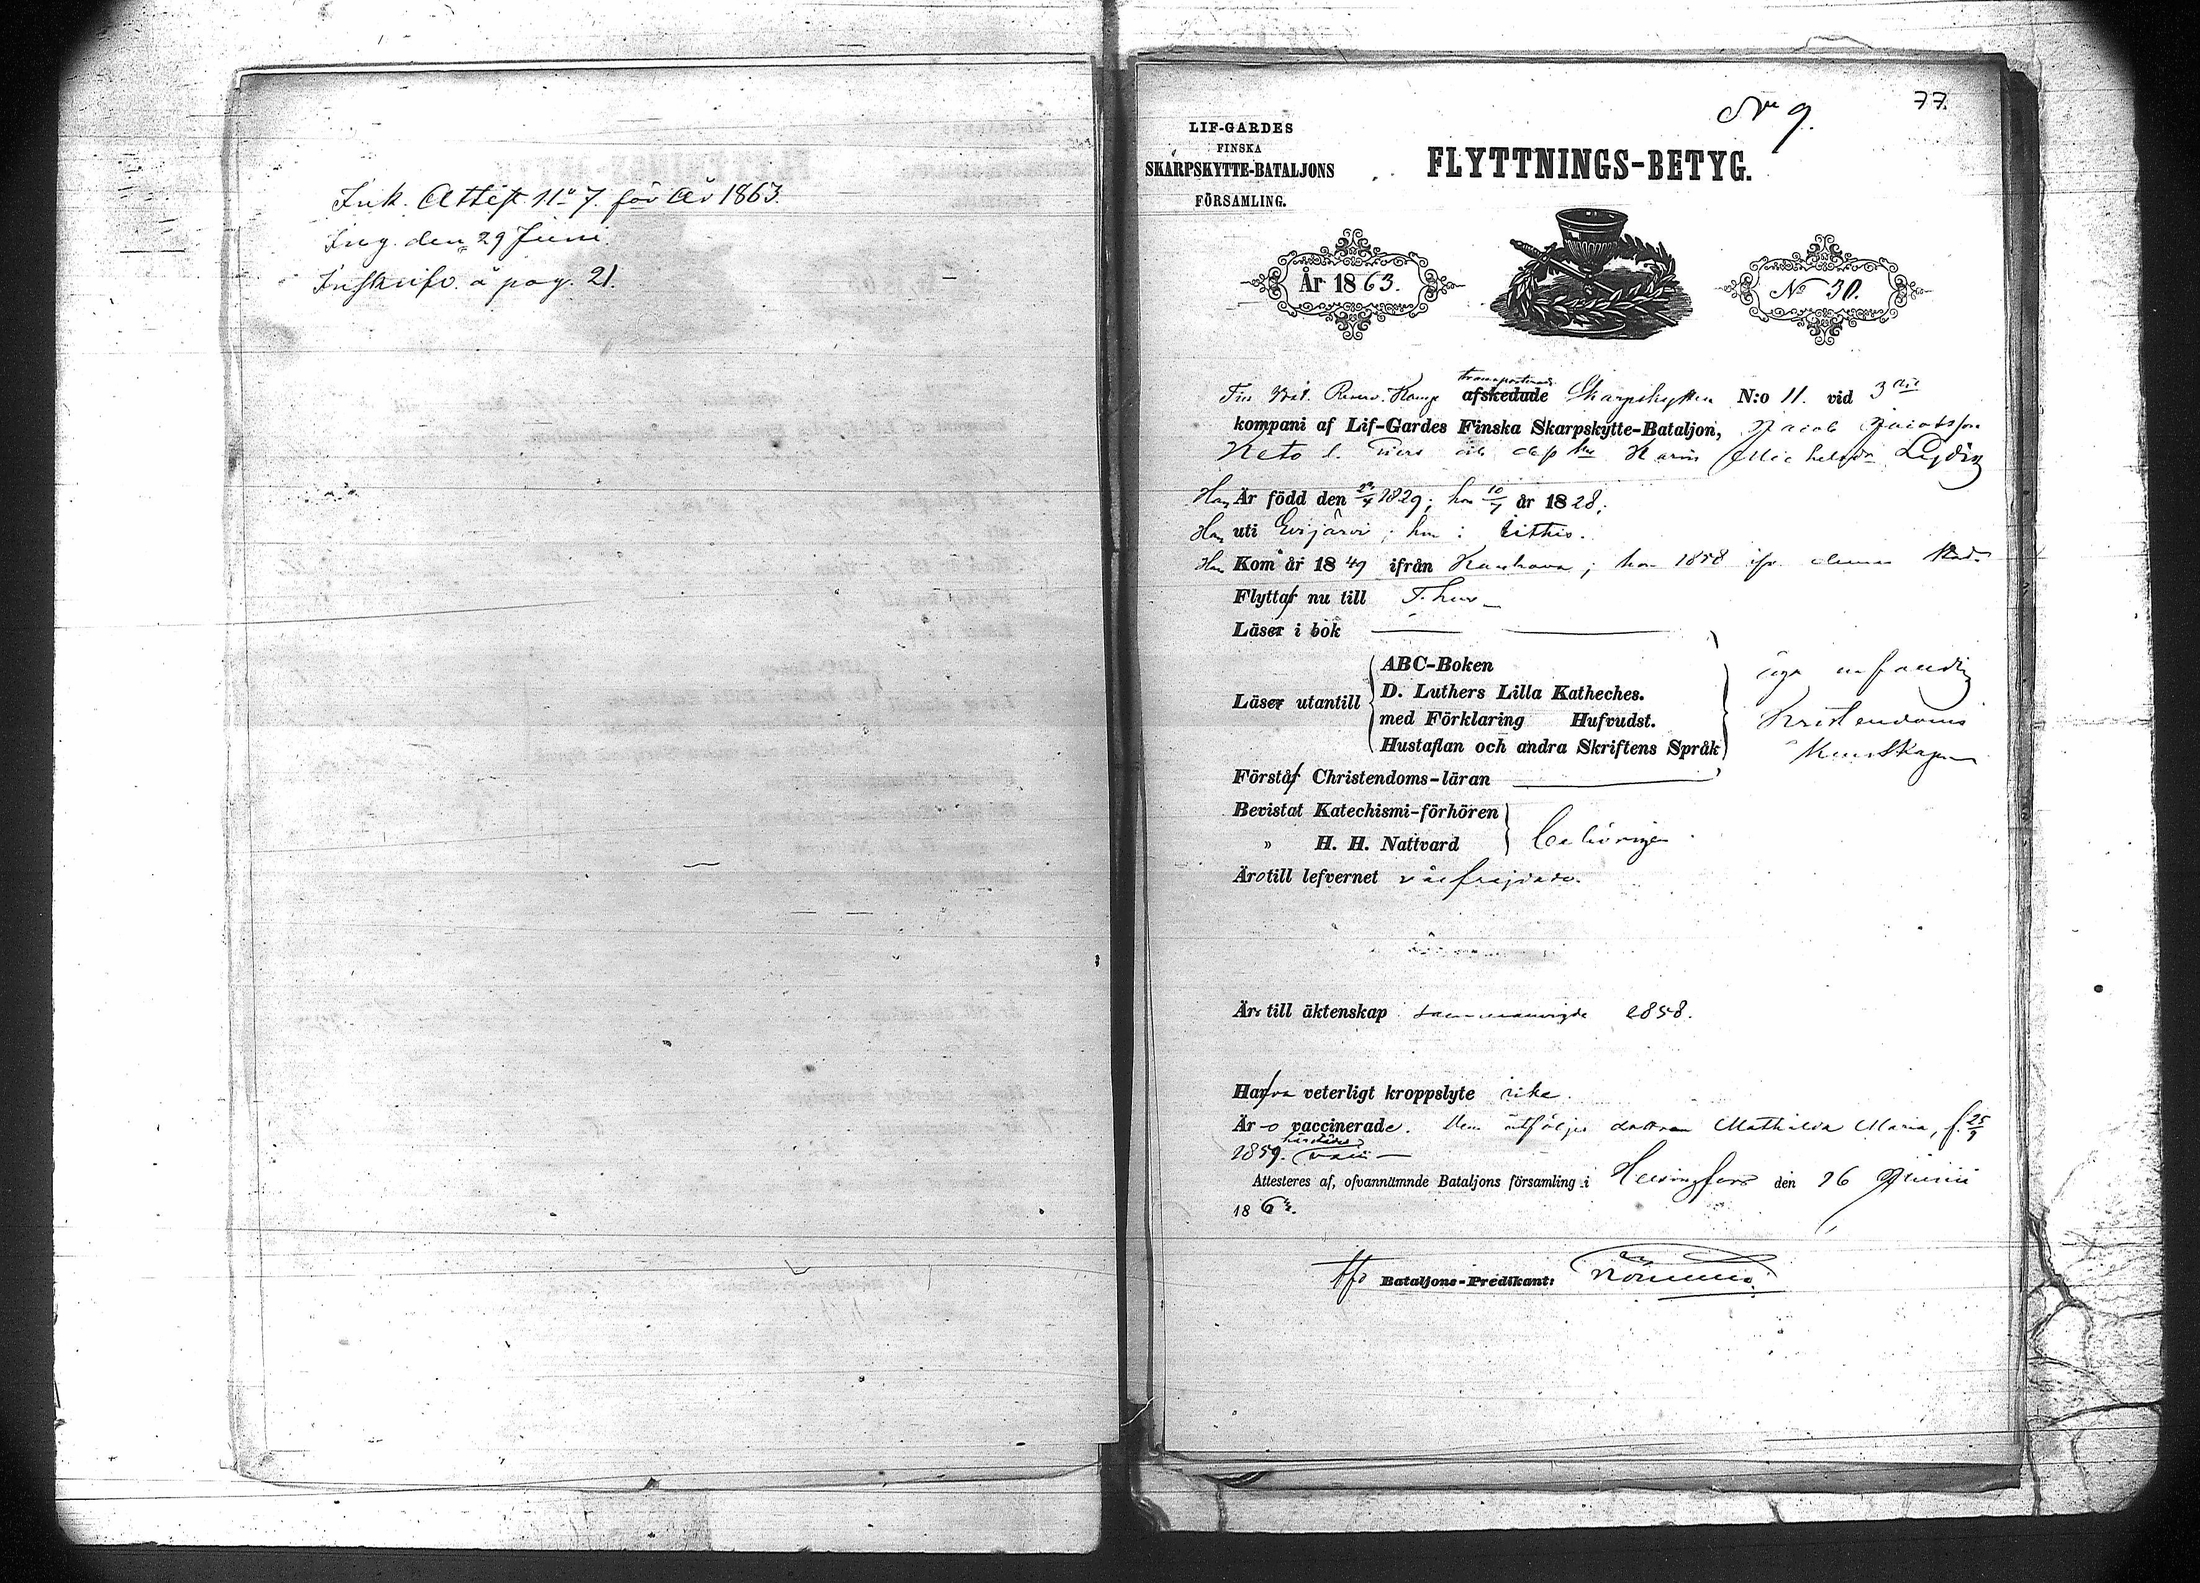 Ink. Attest No 7. för år 1863.
Ing. den 29 Juni.
Inskrifv. å pag. 21.
77.
No 9.
LIF-GARDES
FINSKA
SKARPSKYTTE-BATALJONS
FÖRSAMLING.
FLYTTNINGS-BETYG.
År 1863.
No 30.
transporterade
Komp afskedade Skarpskytten N:o 11. vid 3
kompani af Lif-Gardes Finska Skarpskytte-Bataljon, Jacob Jacobsson
Keto Karin Michelsdr
Han Är född den 1829; hon 10/7 år 1828;
Han uti Evijärvi; hon i Eithis.
Han Kom år 1849 ifrån Kauhava; hon 1858 ifr. denna stad.
Flytta nu till
Läser i bok
Läser utantill
ABC-Boken
D. Luthers Lilla Katheches.
med Förklaring Hufvudst.
Hustaflan och andra Skriftens Språk
Kristendoms
kunskaper
Förstå Christendoms-läran
Bevistat Katechismi-förhören
» H. H. Nattvard
behörigen
Äro till lefvernet välfrejdade.
Äro till äktenskap sammanvigde 1858.
Hafva veterligt kroppslyte icke.
Äro vaccinerade. Dem åtföljer dottren Mathilda Maria, f. 25/9
1859.
Attesteres af, ofvannämnde Bataljons församling i Helsingfors den 26 Junii
1863.
Bataljons-Predikant: